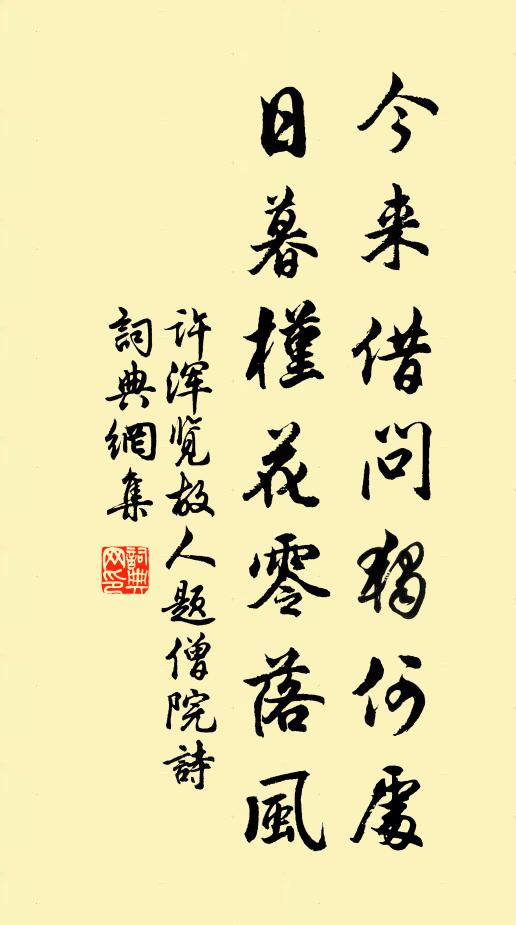 今来借问独何處
日暮槿花零落風
许浑览故人题僧院詩
詞典網集
詞典网印